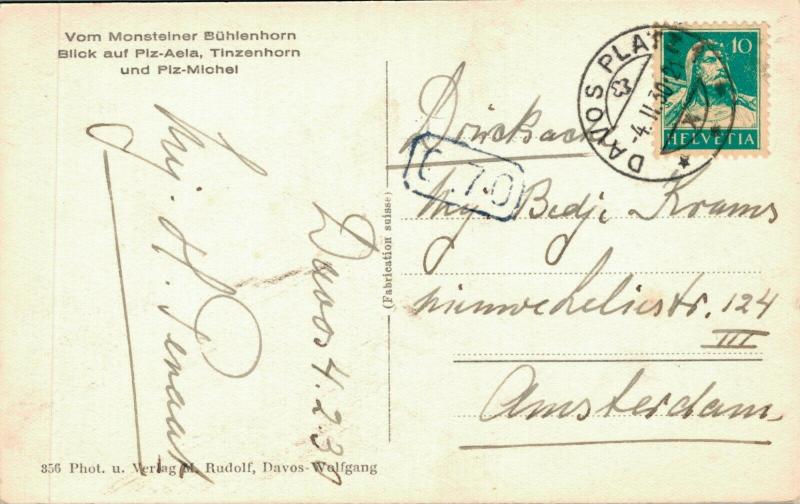 Vom Monsteiner Bühlenhorn
Blick auf Piz-Aela, Tinzenhorn
und Piz-Michel
10
HELVETIA
DAVOS PLATZ
-4.II.30
C 70
Drucksache
Mej. Bedje Krams
Nieuwe Leliestr. 124
III
Amsterdam
(Fabrication suisse)
Davos 4.2.30
Mej. H.
356 Phot. u. Verlag M. Rudolf, Davos-Wolfgang